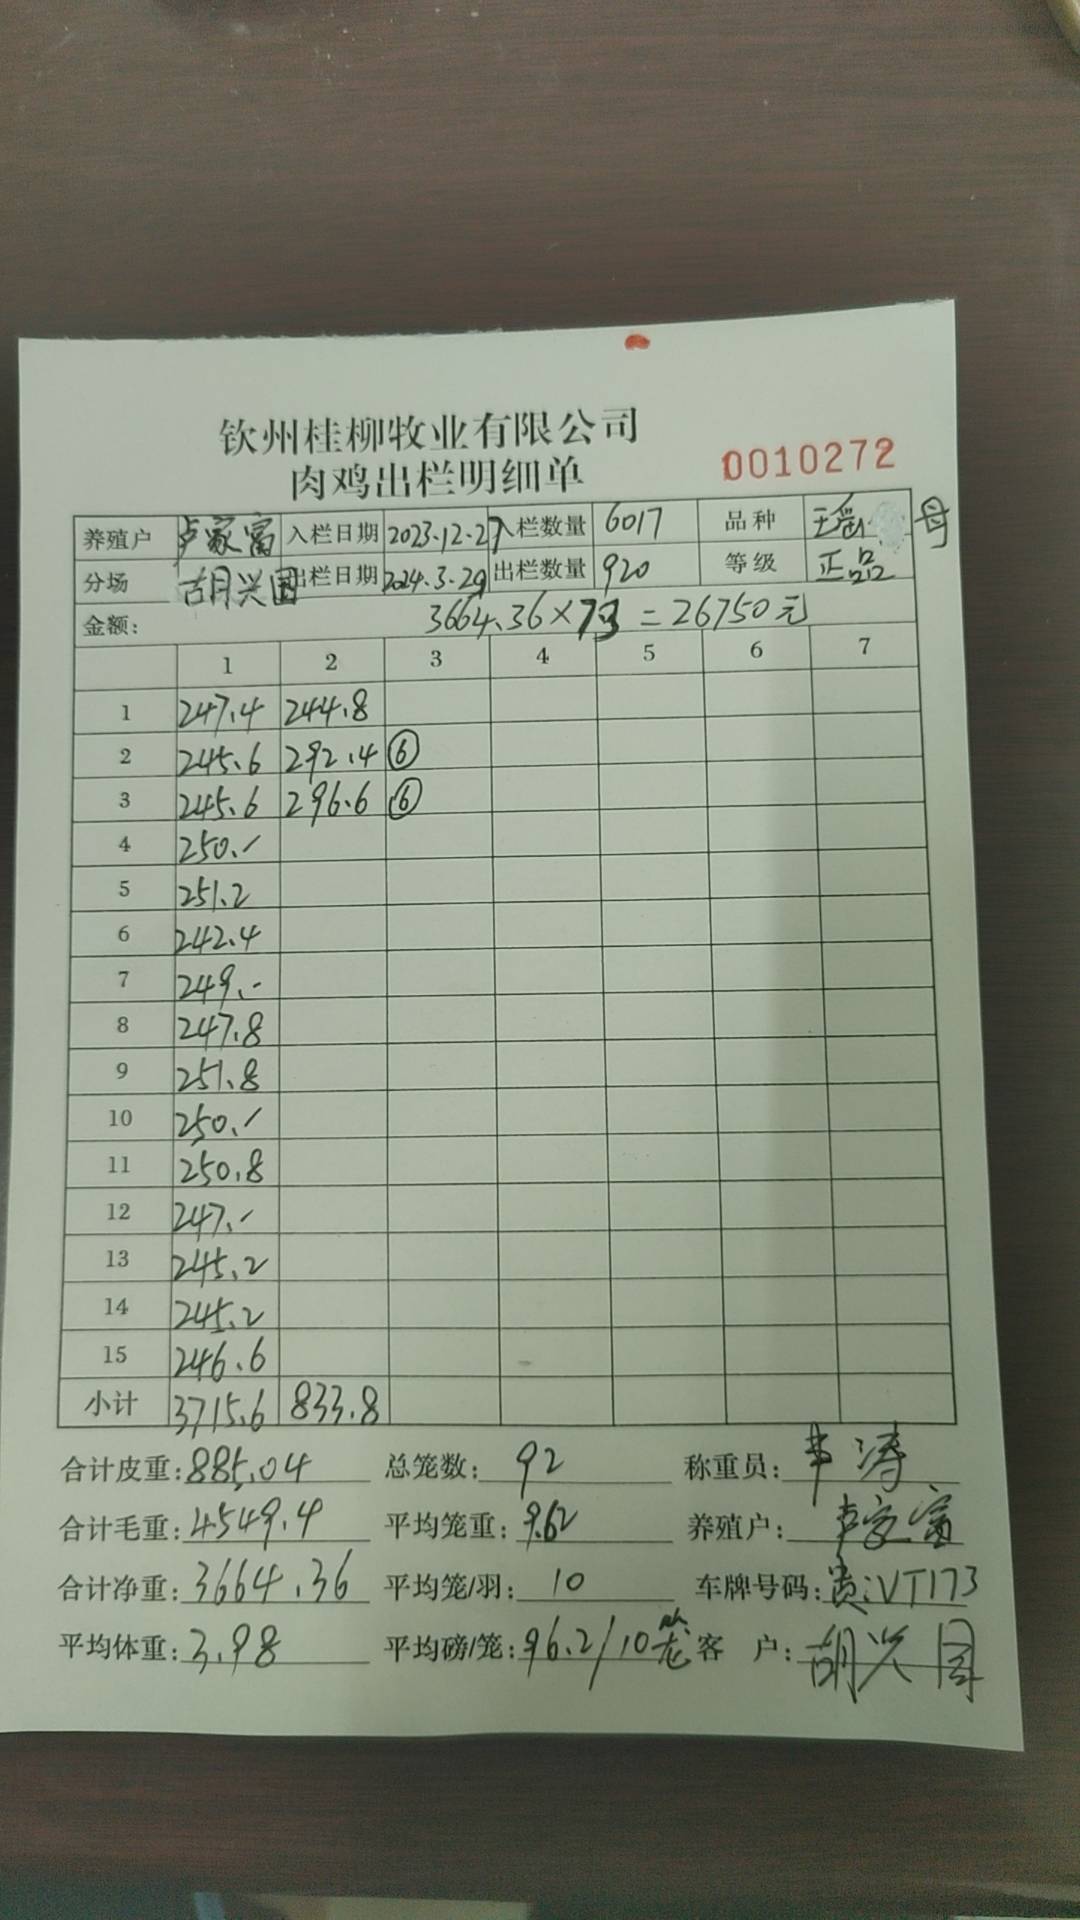 钦州桂柳牧业有限公司
肉鸡出栏明细单 0010272
养殖户 卢家富 入栏日期 2023.12.27 入栏数量 6017 品种 瑶 母
分场 胡兴国 出栏日期 2024.3.29 出栏数量 920 等级 正品
金额: 3664.36×73=26750元
1 2 3 4 5 6 7
1 247.4 244.8
2 245.6 292.4 ⑥
3 245.6 296.6 ⑥
4 250.-
5 251.2
6 242.4
7 249.-
8 247.8
9 251.8
10 250.-
11 250.8
12 247.-
13 245.2
14 245.2
15 246.6
小计 3715.6 833.8
合计皮重: 885.04 总笼数: 92 称重员: 韦涛
合计毛重: 4549.4 平均笼重: 9.62 养殖户: 卢家富
合计净重: 3664.36 平均笼/羽: 10 车牌号码: 贵:VT173
平均体重: 3.98 平均磅/笼: 96.2/10笼 客 户: 胡兴国